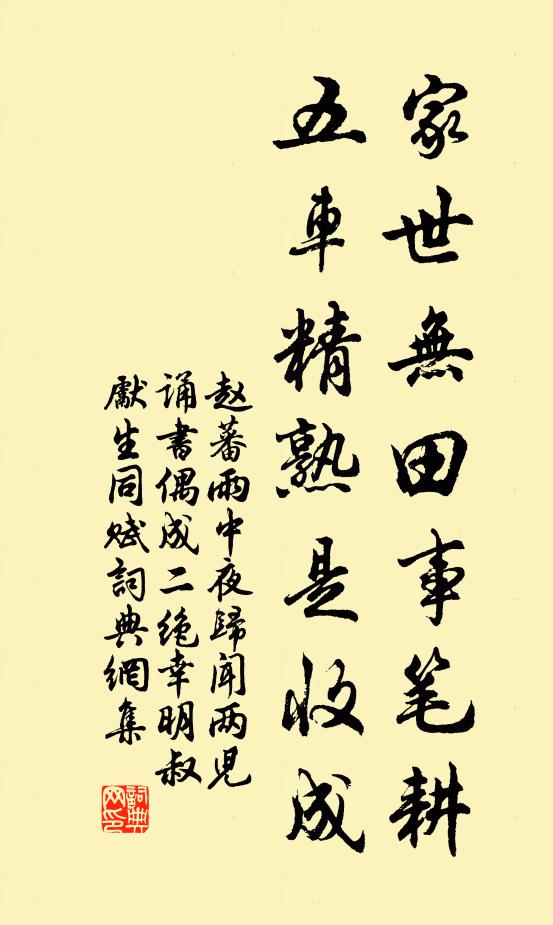 家世無田事笔耕
五車精熟是收成
赵蕃雨中夜歸闻两児
诵書偶成二绝幸明叔
獻生同赋詞典網集
詞典网印